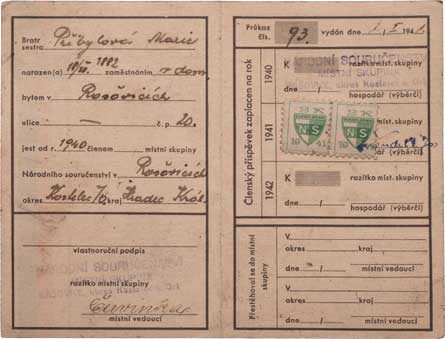 Bratr
sestra Přibylová Marie
narozen(a) 1882 zaměstnáním v dom.
bytem v Rosovicích
ulice — č. p. 20.
jest od r. 1940 členem místní skupiny
Národního souručenství v Rosovicích
okres Kostelec kraj Hradec Král.
vlastnoruční podpis
NÁRODNÍ SOURUČENSTVÍ
MÍSTNÍ SKUPINA
razítko místní skupiny
Červinka
místní vedoucí
Průkaz
čís. 93. vydán dne 1. I. 194
Členský příspěvek zaplacen na rok
1940
K razítko míst. skupiny
NÁRODNÍ SOURUČENSTVÍ
MÍSTNÍ SKUPINA
okres Kostelec
dne / hospodář (výběrčí)
1941
2 K 2 K
NS NS
19 41 19 41
hospodář (výběrčí)
1942
K razítko míst. skupiny
dne / hospodář (výběrčí)
Přestěhoval se do místní skupiny
V
okres kraj
dne / místní vedoucí
V
okres kraj
dne / místní vedoucí